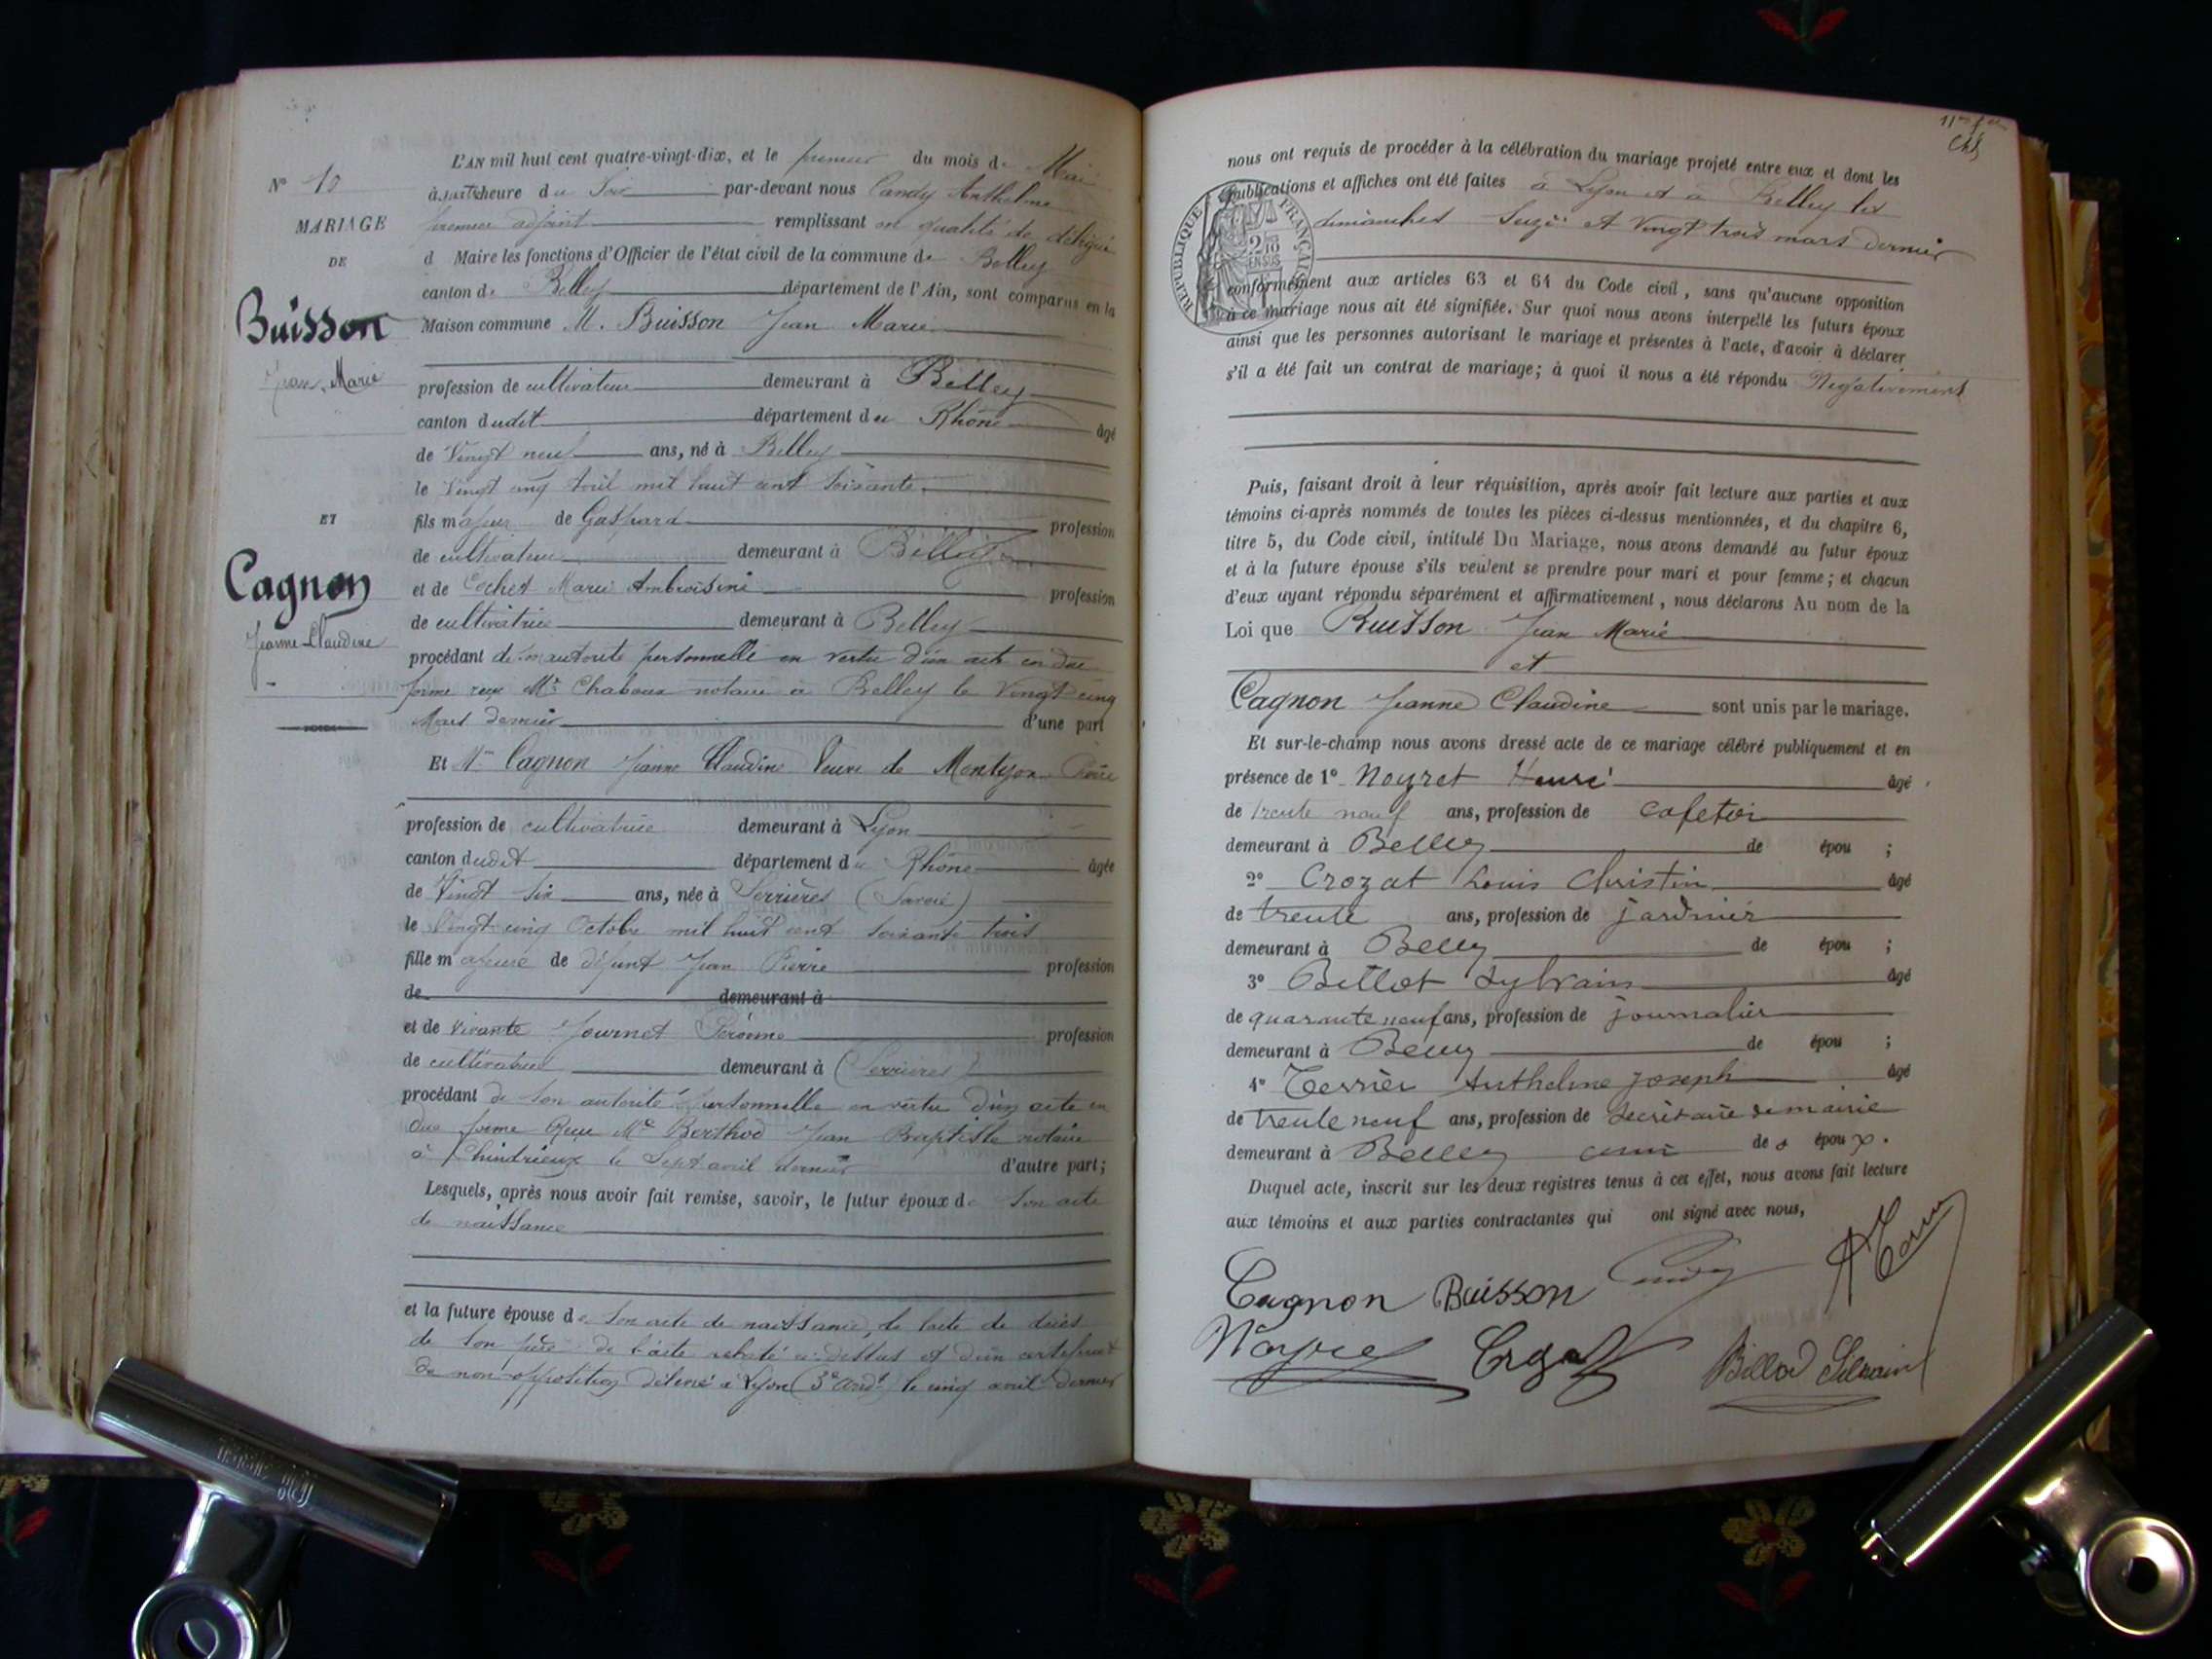 L'AN mil huit cent quatre-vingt-dix, et le premier du mois de Mai
N° 10
à sept heure du Soir par-devant nous Candy Anthelme
MARIAGE
premier adjoint remplissant en qualité de délégué
DE
d Maire les fonctions d'Officier de l'état civil de la commune de Belley
canton de Belley département de l'Ain, sont comparus en la
Buisson
Maison commune M. Buisson Jean Marie
Jean Marie
profession de cultivateur demeurant à Belley
canton dudit département du Rhône âgé
de Vingt neuf ans, né à Belley
le Vingt cinq Août mil huit cent soixante
ET
fils majeur de Gaspard profession
de cultivateur demeurant à Belley
Cagnon
et de Cochet Marie Ambroisine profession
de cultivatrice demeurant à Belley
Jeanne Claudine
procédant de son autorité personnelle en vertu d'un acte en due
forme reçu Me Chaboux notaire à Belley le Vingt cinq
Mars dernier d'une part
Et Me Cagnon Jeanne Claudine Veuve de Montyon
profession de cultivatrice demeurant à Lyon
canton dudit département du Rhône âgée
de Vingt six ans, née à Serrières (Savoie)
le Vingt cinq Octobre mil huit cent soixante trois
fille majeure de défunt Jean Pierre profession
de demeurant à
et de vivante Journet Péronne profession
de cultivatrice demeurant à (Serrières)
procédant de son autorité personnelle en vertu d'un acte en
due forme Reçu Me Berthod Jean Baptiste notaire
à Chindrieux le Sept avril dernier d'autre part;
Lesquels, après nous avoir fait remise, savoir, le futur époux de son acte
de naissance
et la future épouse de son acte de naissance, de l'acte de décès
de son père de l'acte relaté ci-dessus et d'un certificat
de non opposition délivré à Lyon (3e arrdt) le cinq avril dernier
nous ont requis de procéder à la célébration du mariage projeté entre eux et dont les
publications et affiches ont été faites à Lyon et à Belley les
dimanches Seize et Vingt trois mars dernier
REPUBLIQUE FRANÇAISE
conformément aux articles 63 et 64 du Code civil, sans qu'aucune opposition
à ce mariage nous ait été signifiée. Sur quoi nous avons interpellé les futurs époux
ainsi que les personnes autorisant le mariage et présentes à l'acte, d'avoir à déclarer
s'il a été fait un contrat de mariage; à quoi il nous a été répondu Négativement
Puis, faisant droit à leur réquisition, après avoir fait lecture aux parties et aux
témoins ci-après nommés de toutes les pièces ci-dessus mentionnées, et du chapitre 6,
titre 5, du Code civil, intitulé Du Mariage, nous avons demandé au futur époux
et à la future épouse s'ils veulent se prendre pour mari et pour femme; et chacun
d'eux ayant répondu séparément et affirmativement, nous déclarons Au nom de la
Loi que Buisson Jean Marie
et
Cagnon Jeanne Claudine sont unis par le mariage.
Et sur-le-champ nous avons dressé acte de ce mariage célébré publiquement et en
présence de 1° Noyret Henri âgé
de trente neuf ans, profession de cafetier
demeurant à Belley de épou ;
2° Crozat Louis Christin âgé
de trente ans, profession de jardinier
demeurant à Belley de épou ;
3° Billot Sylvain âgé
de quarante neuf ans, profession de journalier
demeurant à Belley de épou ;
4° Terrier Anthelme Joseph âgé
de trente neuf ans, profession de Secrétaire de mairie
demeurant à Belley amis des époux.
Duquel acte, inscrit sur les deux registres tenus à cet effet, nous avons fait lecture
aux témoins et aux parties contractantes qui ont signé avec nous,
Cagnon Buisson Candy
Noyret Crozat Billod Silvain